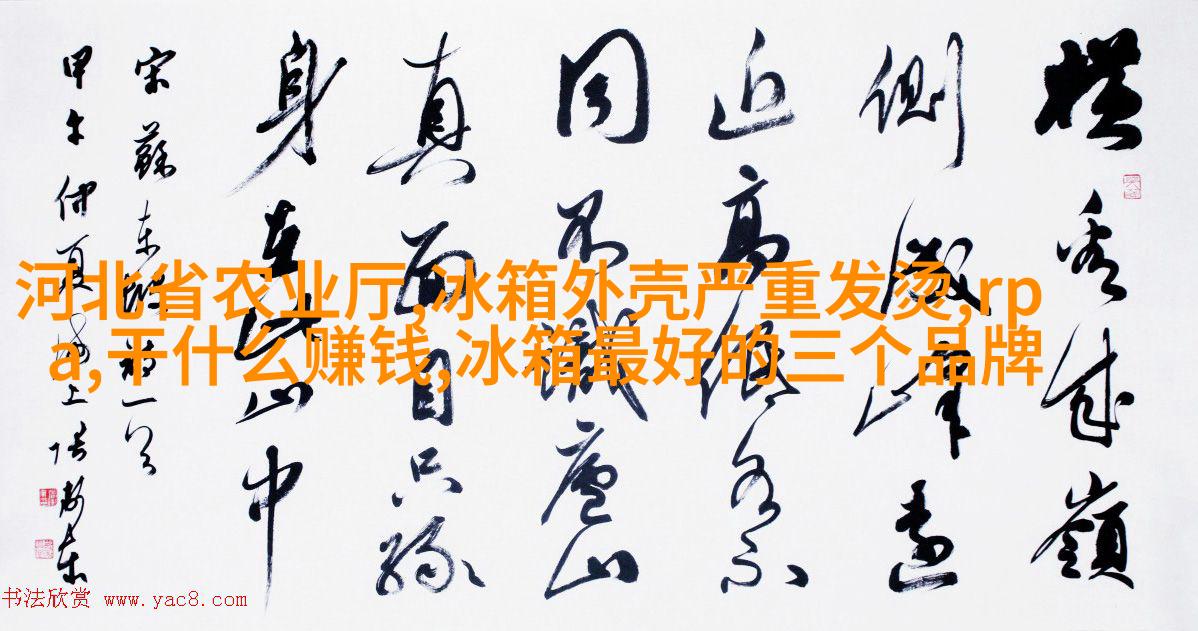 横看成嶺
側成峰遠
近高低各不
同不識廬山
真面目只緣
身在此山中
宋蘇東坡詩一首
甲午仲夏
河北省农业厅,冰箱外壳严重发烫,rp
a,干什么赚钱,冰箱最好的三个品牌
书法欣赏 www.yac8.com